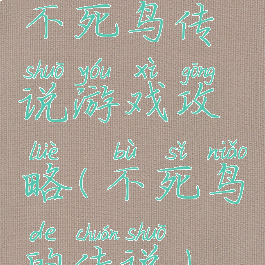 不死鸟传
shuō yóu xì gōng
说游戏攻
lüè bù sǐ niǎo
略(不死鸟
de chuán shuō
的传说)